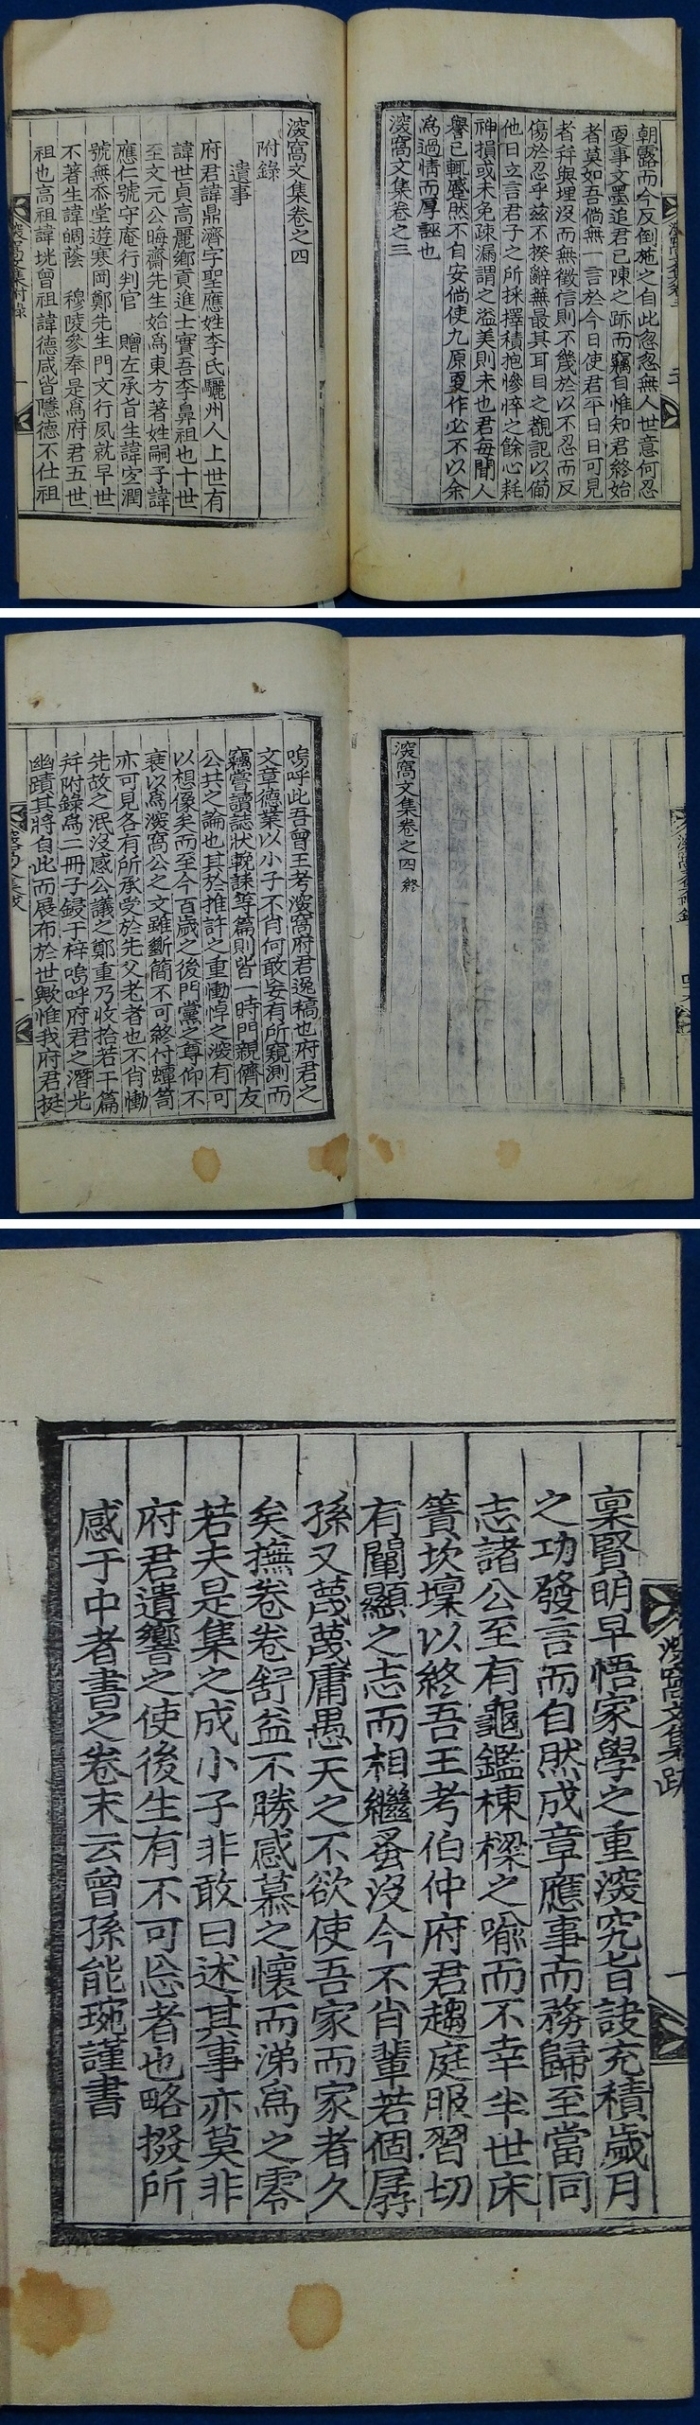 朝露而今反倒施之自此忽忽無人世意何忍
更事文墨追君已陳之跡而竊自惟知君終始
者莫如吾倘無一言於今日使君平日日可見
者幷與埋沒而無徵信則不幾於以不忍而反
傷於忍乎玆不揆辭蕪最其耳目之覩記以備
他日立言君子之所採擇積抱慘悴之餘心耗
神損或未免疎漏謂之溢美則未也君每聞人
譽已輒蹙然不自安倘使九原更作必不以余
爲過情而厚誣也
湥窩文集卷之三
湥窩文集卷之四
附錄
遺事
府君諱鼎濟字聖應姓李氏驪州人上世有
諱世貞高麗鄕貢進士實吾李鼻祖也十世
至文元公晦齋先生始爲東方著姓嗣子諱
應仁號守庵行判官 贈左承旨生諱宜潤
號無忝堂遊寒岡鄭先生門文行夙就早世
不著生諱皭蔭 穆陵參奉是爲府君五世
祖也高祖諱垙曾祖諱德咸皆隱德不仕祖
湥窩文集附錄
一
湥窩文集卷之四 終
嗚呼此吾曾王考湥窩府君逸稿也府君之
文章德業以小子不肖何敢妄有所窺測而
竊嘗讀誌狀輓誄等篇則皆一時門親儕友
公共之論也其於推許之重慟悼之湥有可
以想像矣而至今百歲之後門黨之尊仰不
衰以爲湥窩公之文雖斷簡不可終付蟫笥
亦可見各有所承受於先父老者也不肖慟
先故之泯沒感公議之鄭重乃收拾若干篇
幷附錄爲二冊子鋟于梓嗚呼府君之潛光
幽蹟其將自此而展布於世歟惟我府君挺
一
湥窩文集跋
一
稟賢明早悟家學之重湥究旨訣充積歲月
之功發言而自然成章應事而務歸至當同
志諸公至有龜鑑棟樑之喩而不幸半世床
簀坎壈以終吾王考伯仲府君趨庭服習切
有闡顯之志而相繼蚤沒今不肖輩若個孱
孫又蔑蔑庸愚天之不欲使吾家而家者久
矣撫卷卷舒益不勝感慕之懷而涕爲之零
若夫是集之成小子非敢曰述其事亦莫非
府君遺響之使後生有不可忘者也略掇所
感于中者書之卷末云曾孫能琬謹書